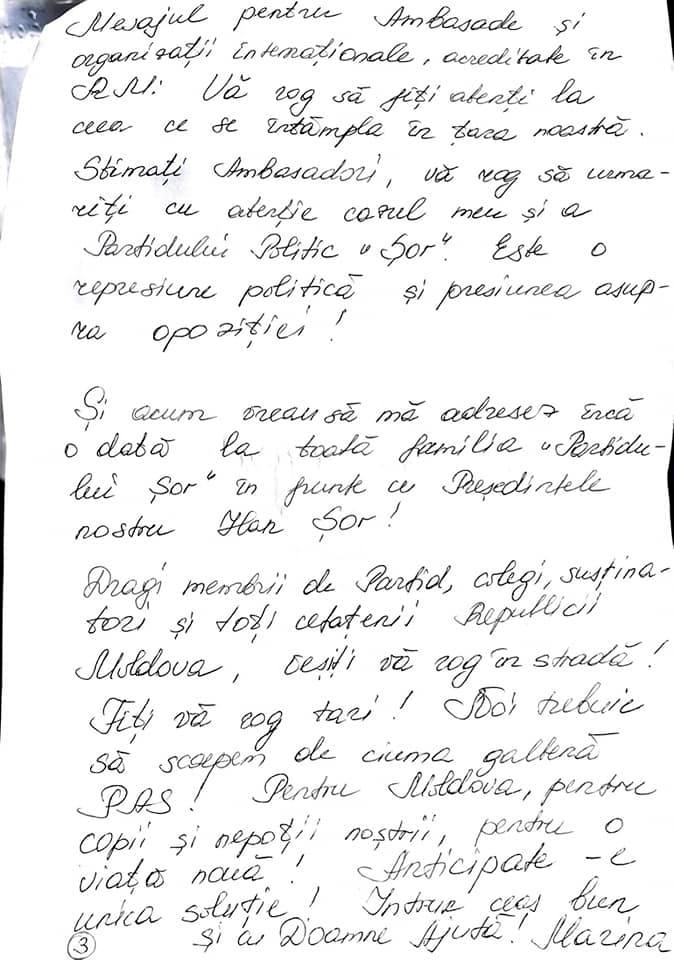 Mesajul pentru Ambasade și
organizații internaționale, acreditate în
R.M.: Vă rog să fiți atenți la
ceea ce se întâmpla în țara noastră.
Stimați Ambasadori, vă rog să urma-
riți cu atenție cazul meu și a
Partidului Politic „Șor". Este o
represiune politică și presiunea asup-
ra opoziției!
Și acum vreau să mă adresez încă
o dată la toată familia „Partidu-
lui Șor" în frunte cu Președintele
nostru Ilan Șor!
Dragi membrii de Partid, colegi, susțina-
tori și toți cetațenii Republicii
Moldova, ieșiți vă rog în stradă!
Fiți vă rog tari! Noi trebuie
să scapem de ciuma galbenă
PAS! Pentru Moldova, pentru
copii și nepoții noștrii, pentru o
viață nouă! Anticipate -e
unica soluție! Intrun ceas bun
și cu Doamne Ajută! Marina
3